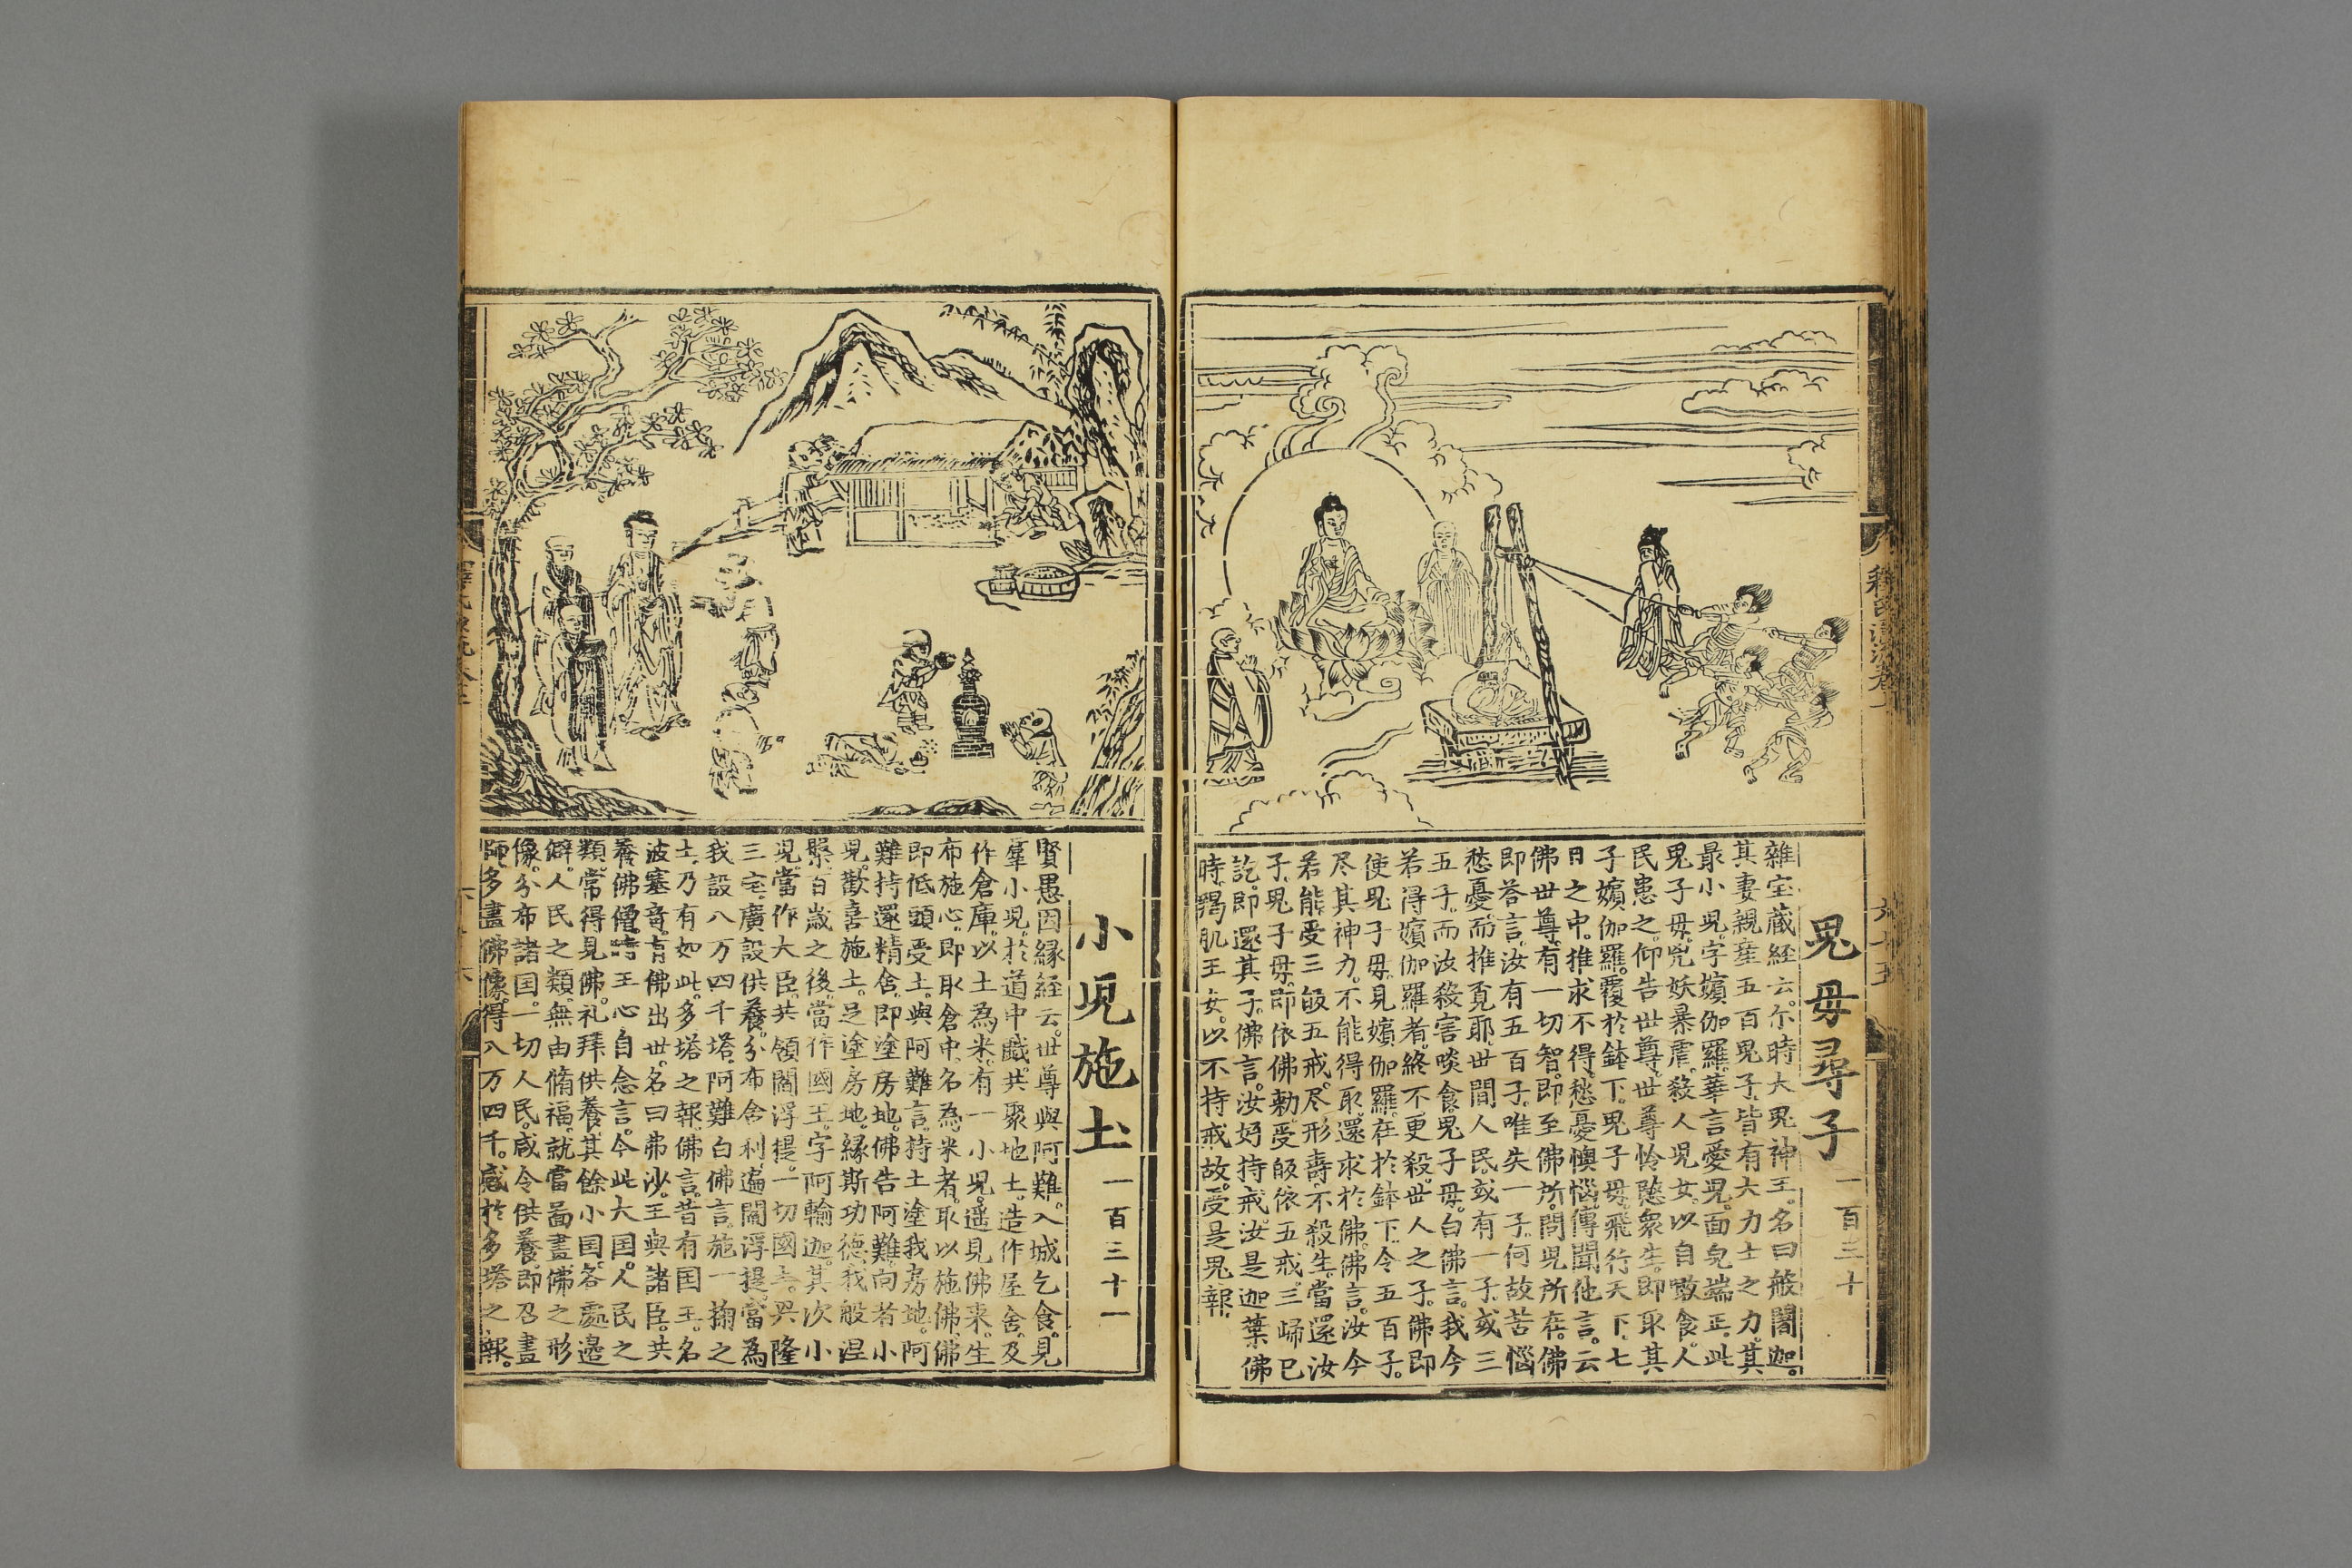 鬼母尋子 一百三十
雜宝蔵経云。尒時大鬼神王。名曰般闍迦。
其妻親產五百鬼子。皆有大力士之力。其
最小児。字嬪伽羅。華言愛児。面皃端正。此
鬼子母。兇妖暴虐。殺人児女。以自噉食。人
民患之。仰告世尊。世尊怜愍衆生。即取其
子嬪伽羅。覆於鉢下。鬼子母。飛行天下。七
日之中。推求不得。愁憂懊惱。傳聞他言。云
佛世尊。有一切智。即至佛所。問児所在。佛
即荅言。汝有五百子。唯失一子。何故苦惱
愁憂。而推覔耶。世間人民。或有一子。或三
五子。而汝殺害啖食。鬼子母。白佛言。我今
若得嬪伽羅者。終不更殺。世人之子。佛即
使鬼子母。見嬪伽羅。在於鉢下。令五百子。
尽其神力。不能得取。還求於佛。佛言。汝今
若能受三皈五戒。尽形壽不殺生。當還汝
子。鬼子母。即依佛勅。受皈依五戒。三歸已
訖。即還其子。佛言。汝好持戒。汝是迦葉佛
時。羯肌王女。以不持戒故。受是鬼報。
小児施土 一百三十一
賢愚因緣経云。世尊與阿難。入城乞食。見
羣小児。於道中戯。共聚地土。造作屋舍。及
作倉庫。以土為米。有一小児。遥見佛来。生
布施心。即取倉中。名為米者。取以施佛。佛
即低頭受土。與阿難言。持土塗我房地。阿
難持還精舍。即塗房地。佛告阿難。向者小
児。歡喜施土。足塗房地。緣斯功德。我般涅
槃。百歲之後。當作國王。字阿輸迦。其次小
児。當作大臣。共領閻浮提。一切國土。興隆
三宝。廣設供養。分布舍利。遍閻浮提。當為
我設八万四千塔。阿難白佛言。施一掬之
土。乃有如此。多塔之報。佛言。昔有国王。名
波塞竒。有佛出世。名曰弗沙。王與諸臣。共
養佛僧。時王心自念言。今此大国。人民之
類。常得見佛。礼拜供養。其餘小国。各處邉
僻。人民之類。無由脩福。就當啚畫。佛之形
像。分布諸国。一切人民。咸令供養。即召畫
師。多畫佛像。得八万四千。感於多塔之報。